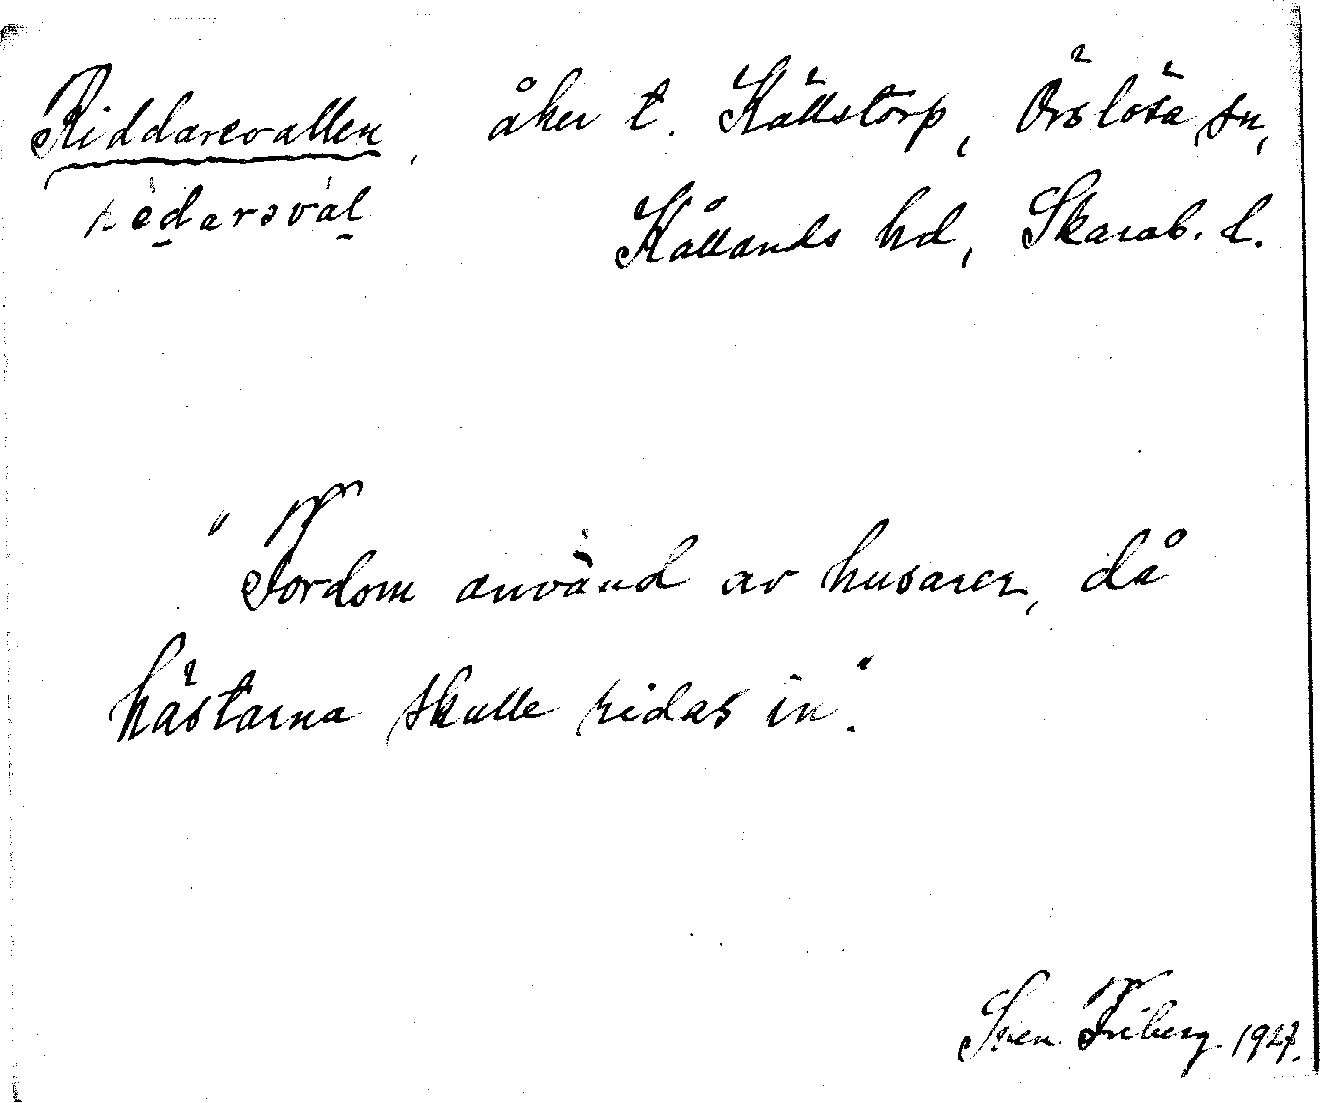 Riddarevallen, åker t. Källstorp, Örslösa sn,
rèdarsvàl Kållands hd, Skarab. l.
"Fordom använd av husarer, då
hästarna skulle ridas in".
Sven Friberg 1927.